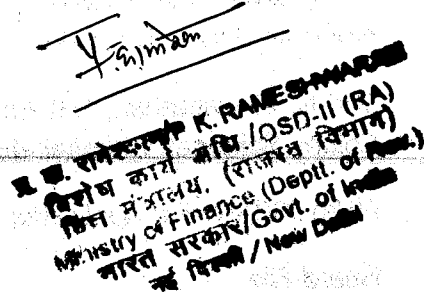 प्र. क. रामेश्वरम/P K. RAMESHWARAM
विशेष कार्य अधि./OSD-II (RA)
वित्त मंत्रालय, (राजस्व विभाग)
Ministry of Finance (Deptt. of Rev.)
भारत सरकार/Govt. of India
नई दिल्ली / New Delhi